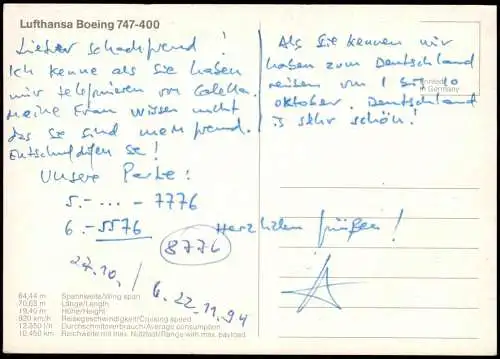 Lufthansa Boeing 747-400
Lieber Schachfreund!
Ich kenne als Sie haben
mir telefonieren von Calella.
Meine Frau wissen nicht
das Sie sind mein freund.
Entschuldigen Sie!
Unsere Partie:
5. - ... - 7776
6. - 5576
8776
27.10. / 6. 22.11.94
Als Sie kennen wir
haben zum Deutschland
reisen von 1 bis 10
oktober. Deutschland
is sehr schön!
Herzlichen grüßen!
in Germany
64,44 m Spannweite/Wing span
70,63 m Länge/Length
19,40 m Höhe/Height
920 km/h Reisegeschwindigkeit/Cruising speed
12.850 l/h Durchschnittsverbrauch/Average consumption
10.450 km Reichweite mit max. Nutzlast/Range with max. payload